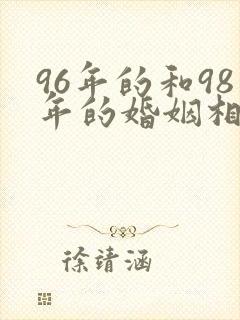 96年的和98
年的婚姻相
徐靖涵